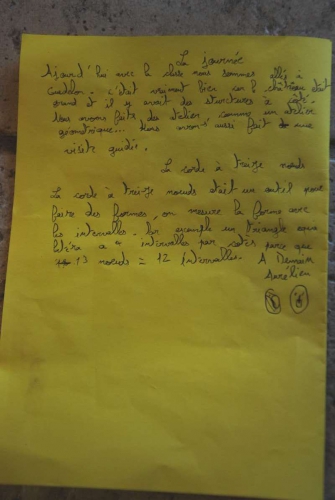 La journée
Aujourd'hui avec la classe nous sommes allés à
Guédelon. c'était vraiment bien car le château était
grand et il y avait des structures à coté.
Nous avons faits des atelier comme un atelier
géométrique... Nous avons aussi fait une
visite guidée.
La corde à treize nœuds
La corde à treize nœuds était un outil pour
faire des formes, on mesure la forme avec
les intervalles. Par exemple un triangle équi
latéral a 4 intervalles par cotés parce que
13 nœuds = 12 intervalles. A Demain
Aurélien